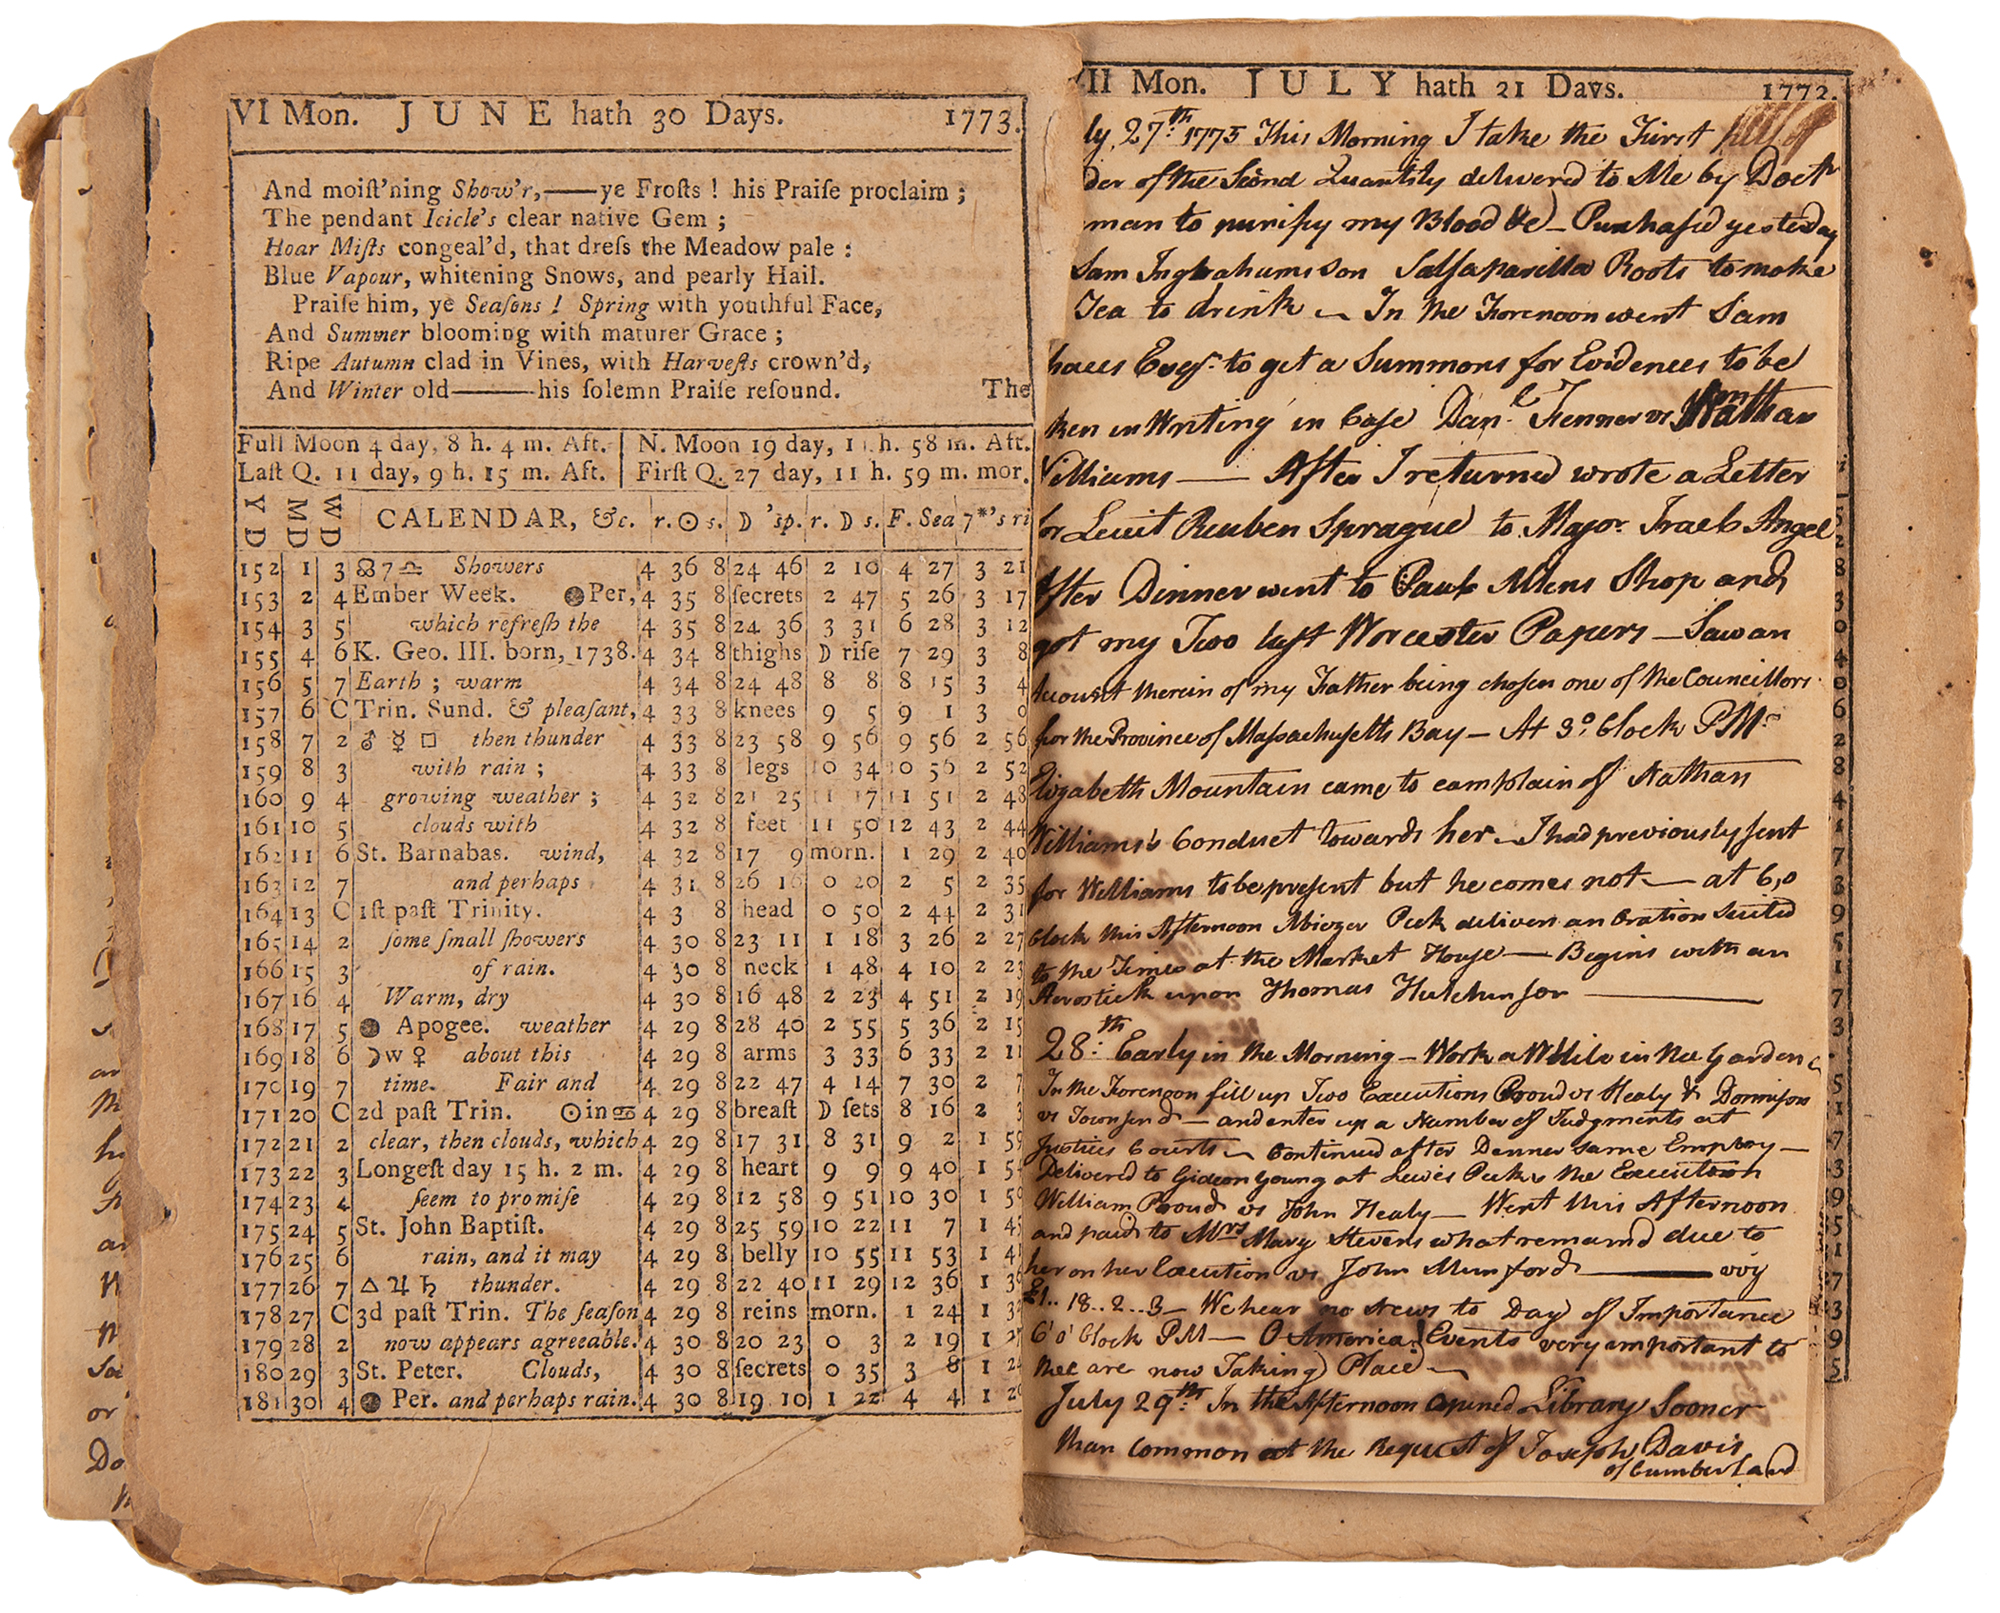 VI Mon. JUNE hath 30 Days. 1773.
And moiſt'ning Show'r,——ye Froſts ! his Praiſe proclaim ;
The pendant Icicle's clear native Gem ;
Hoar Miſts congeal'd, that dreſs the Meadow pale :
Blue Vapour, whitening Snows, and pearly Hail.
Praiſe him, ye Seaſons ! Spring with youthful Face,
And Summer blooming with maturer Grace ;
Ripe Autumn clad in Vines, with Harveſts crown'd,
And Winter old———his ſolemn Praiſe reſound. The
Full Moon 4 day, 8 h. 4 m. Aft. N. Moon 19 day, 11 h. 58 m. Aft.
Laſt Q. 11 day, 9 h. 15 m. Aft. Firſt Q. 27 day, 11 h. 59 m. mor.
YD MD WD CALENDAR, &c. r. ☉ s. ☽ 'sp. r. ☽ s. F. Sea 7*'s ri
152 1 3 ☊ 7 ♎ Showers 4 36 8 24 46 2 10 4 27 3 21
153 2 4 Ember Week. Per, 4 35 8 ſecrets 2 47 5 26 3 17
154 3 5 which refreſh the 4 35 8 24 36 3 31 6 28 3 12
155 4 6 K. Geo. III. born, 1738. 4 34 8 thighs ☽ riſe 7 29 3 8
156 5 7 Earth ; warm 4 34 8 24 48 8 8 8 15 3 4
157 6 C Trin. Sund. & pleaſant, 4 33 8 knees 9 5 9 1 3 0
158 7 2 ♂ ☿ □ then thunder 4 33 8 23 58 9 56 9 56 2 56
159 8 3 with rain ; 4 33 8 legs 10 34 10 56 2 52
160 9 4 growing weather ; 4 32 8 21 25 11 17 11 51 2 48
161 10 5 clouds with 4 32 8 feet 11 50 12 43 2 44
162 11 6 St. Barnabas. wind, 4 32 8 17 9 morn. 1 29 2 40
163 12 7 and perhaps 4 31 8 26 16 0 20 2 5 2 35
164 13 C 1ſt paſt Trinity. 4 3 8 head 0 50 2 44 2 31
165 14 2 ſome ſmall ſhowers 4 30 8 23 11 1 18 3 26 2 27
166 15 3 of rain. 4 30 8 neck 1 48 4 10 2 23
167 16 4 Warm, dry 4 30 8 16 48 2 23 4 51 2 19
168 17 5 Apogee. weather 4 29 8 28 40 2 55 5 36 2 15
169 18 6 ☽ w ♀ about this 4 29 8 arms 3 33 6 33 2 11
170 19 7 time. Fair and 4 29 8 22 47 4 14 7 30 2 7
171 20 C 2d paſt Trin. ☉ in ♋ 4 29 8 breaſt ☽ ſets 8 16 2 3
172 21 2 clear, then clouds, which 4 29 8 17 31 8 31 9 2 1 59
173 22 3 Longeſt day 15 h. 2 m. 4 29 8 heart 9 9 9 40 1 5
174 23 4 ſeem to promiſe 4 29 8 12 58 9 51 10 30 1 5
175 24 5 St. John Baptiſt. 4 29 8 25 59 10 22 11 7 1 4
176 25 6 rain, and it may 4 29 8 belly 10 55 11 53 1 4
177 26 7 △ ♃ ♄ thunder. 4 29 8 22 40 11 29 12 36 1 3
178 27 C 3d paſt Trin. The ſeaſon 4 29 8 reins morn. 1 24 1 3
179 28 2 now appears agreeable. 4 30 8 20 23 0 3 2 19 1 27
180 29 3 St. Peter. Clouds, 4 30 8 ſecrets 0 35 3 8 1 24
181 30 4 Per. and perhaps rain. 4 30 8 19 10 1 22 4 4 1 20
II Mon. JULY hath 31 Days. 1773.
ly 27.th 1775 This Morning I take the First
der of the Second Quantity delivered to Me by Doctr
man to purify my Blood &c) – Purchased yesterday
Sam Ingrahams son Salsaparilla Roots to make
Tea to drink – In the Forenoon went Sam
haces Esqr. to get a Summons for Evidences to be
ken in Writing in Case Danl. Fenner vs Nathan
Williams —— After I returned wrote a Letter
for Leiut Reuben Sprague to Major Israel Angel
After Dinner went to Paul Allens Shop and
got my Two last Worcester Papers – Saw an
Account therein of my Father being chosen one of the Councillors
for the Province of Massachusetts Bay – At 3 o Clock PM.
Elizabeth Mountain came to complain of Nathan
Williams's Conduct towards her – I had previously sent
for Williams to be present but he comes not — at 6,0
Clock this Afternoon Abiezer Peck delivers an Oration suited
to the Times at the Market House — Begins with an
Acrostick upon Thomas Hutchinson ————
28.th Early in the Morning – Work a While in the Garden
In the Forenoon fill up Two Executions Proud vs Healy & Dennison
vs Townsend – and enter up a Number of Judgments at
Justices Courts – Continued after Dinner same Employ –
Delivered to Gideon Young at Lewis Pecks the Execution
William Proud vs John Healy – Went this Afternoon
and paid to Mrs Mary Stevens what remaind due to
her on her Execution vs John Munford ———— viz
£1..18..2..3 – We hear no News to Day of Importance
6'o'Clock PM — O America! Events very important to
thee are now Taking Place –
July 29.th In the Afternoon opened Library Sooner
than common at the Request of Joseph Davis
of Cumberland